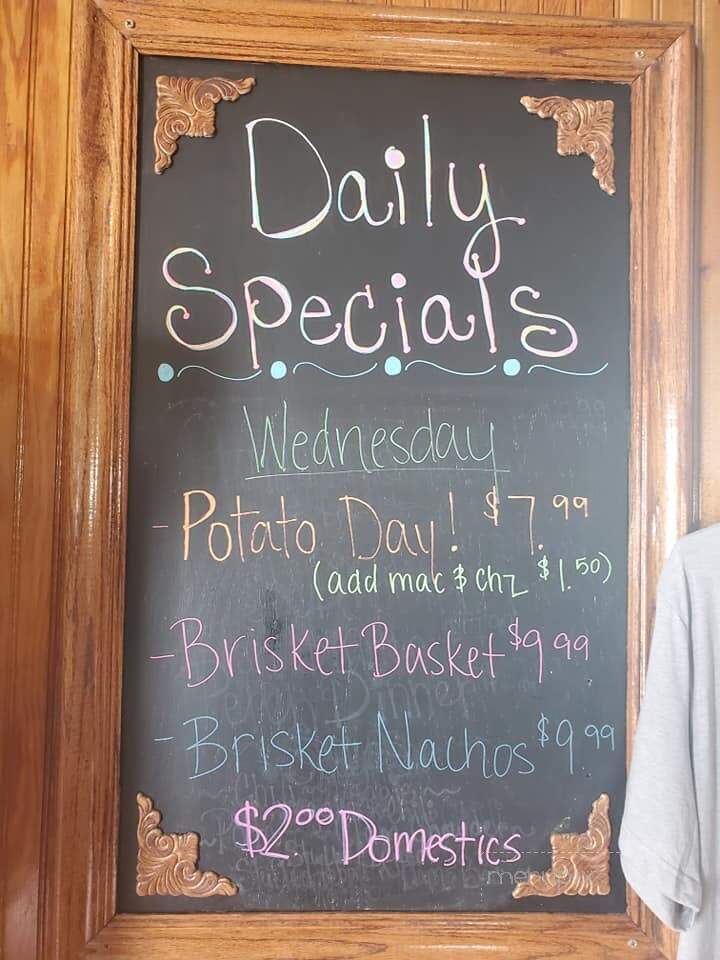 Daily
Specials
Wednesday
- Potato Day! $7.99
(add mac & chz $1.50)
- Brisket Basket $9.99
- Brisket Nachos $9.99
$2.00 Domestics